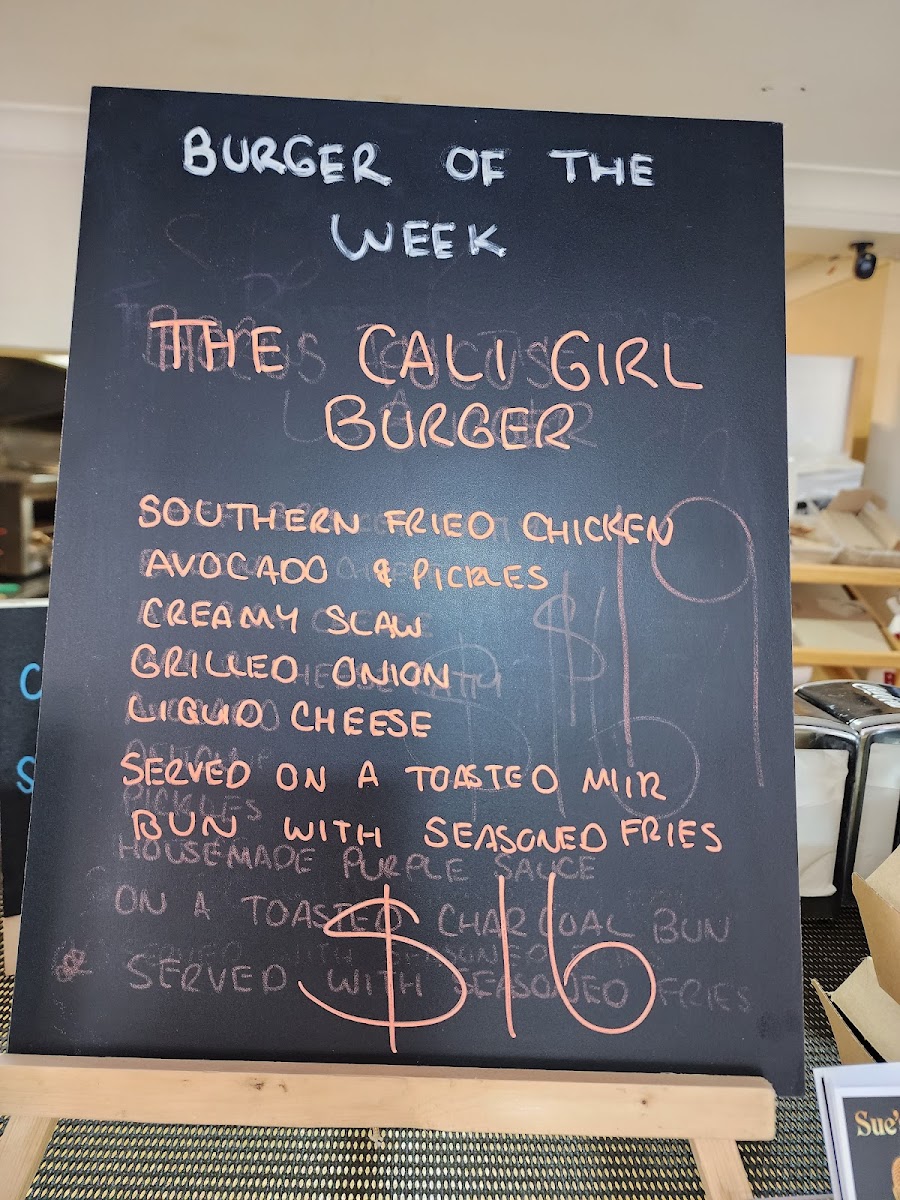 BURGER OF THE
WEEK
THE CALI GIRL
BURGER
SOUTHERN FRIED CHICKEN
AVOCADO & PICKLES
CREAMY SLAW
GRILLED ONION
LIQUID CHEESE
SERVED ON A TOASTED MIR
BUN WITH SEASONED FRIES
PICKLES
HOUSEMADE PURPLE SAUCE
ON A TOASTED CHARCOAL BUN
SERVED WITH SEASONED FRIES
$16
$16
19
Sue'